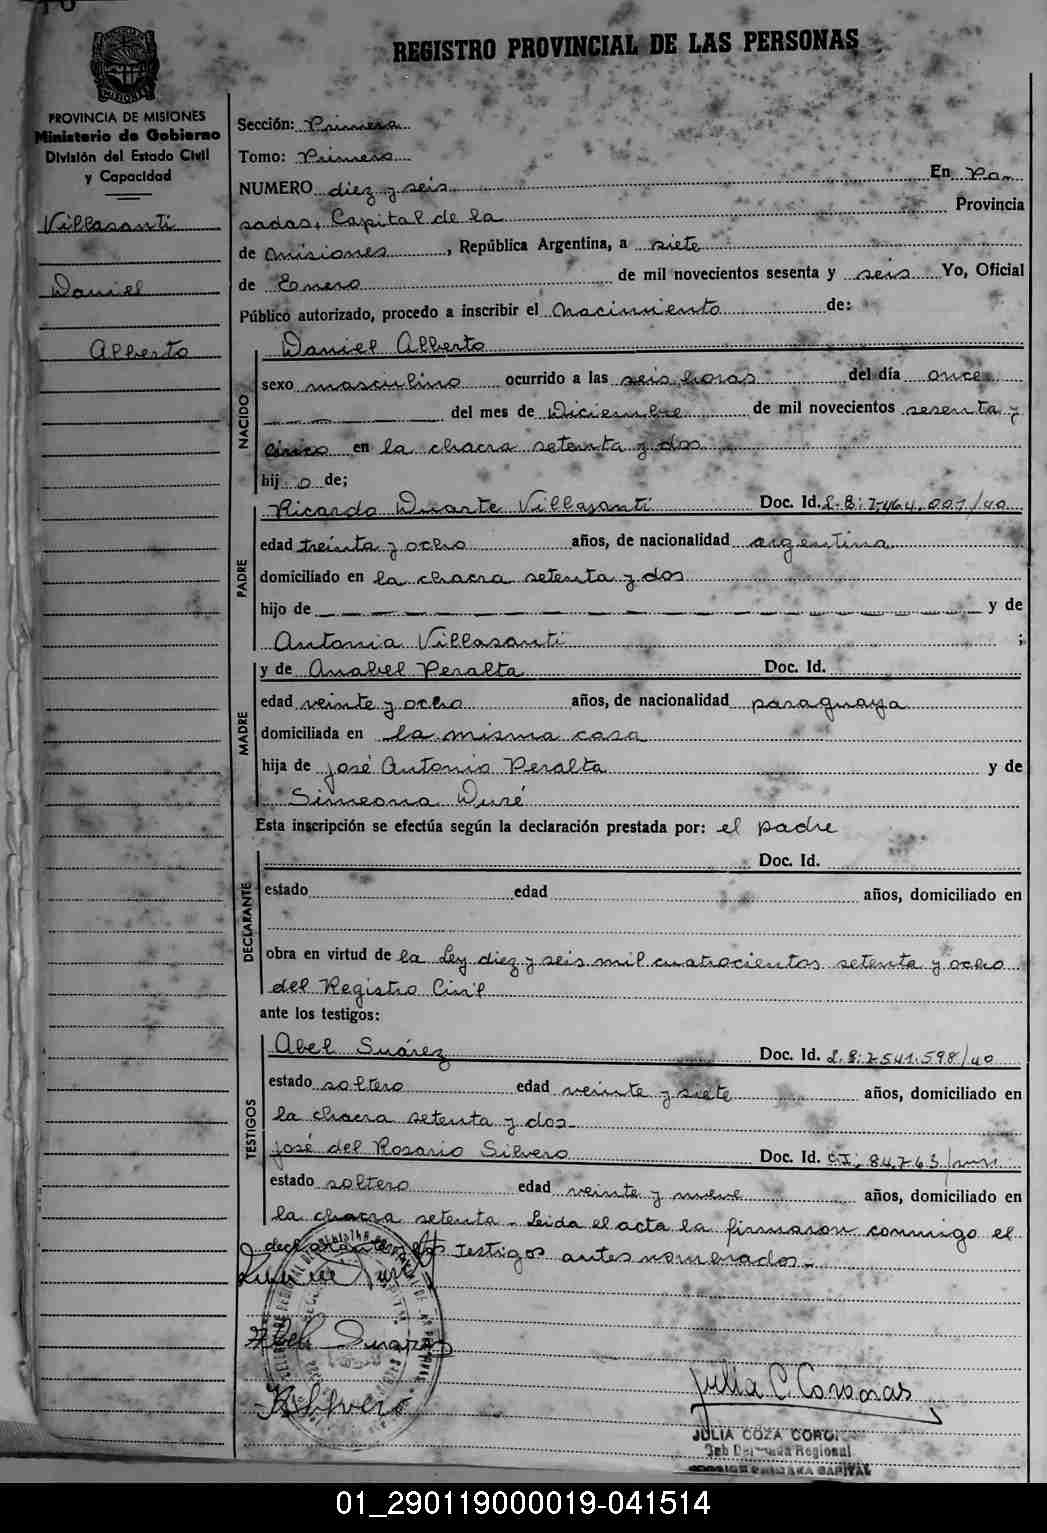 REGISTRO PROVINCIAL DE LAS PERSONAS
PROVINCIA DE MISIONES
Ministerio de Gobierno
División del Estado Civil
y Capacidad
Villasanti
Daniel
Alberto
Sección: Primera
Tomo: Primero
NUMERO diez y seis En Po-
sadas, Capital de la Provincia
de Misiones, República Argentina, a siete
de Enero de mil novecientos sesenta y seis Yo, Oficial
Público autorizado, procedo a inscribir el nacimiento de:
NACIDO
Daniel Alberto
sexo masculino ocurrido a las seis horas del día once
del mes de Diciembre de mil novecientos sesenta y
cinco en la chacra setenta y dos
hijo de;
PADRE
Ricardo Duarte Villasanti Doc. Id. L.E: 7.464.001/40
edad treinta y ocho años, de nacionalidad argentina
domiciliado en la chacra setenta y dos
hijo de y de
Antonia Villasanti ;
MADRE
y de Anabel Peralta Doc. Id.
edad veinte y ocho años, de nacionalidad paraguaya
domiciliada en la misma casa
hija de José Antonio Peralta y de
Simeona Duré
Esta inscripción se efectúa según la declaración prestada por: el padre
DECLARANTE
Doc. Id.
estado edad años, domiciliado en
obra en virtud de la Ley diez y seis mil cuatrocientos setenta y ocho
del Registro Civil
ante los testigos:
TESTIGOS
Abel Suárez Doc. Id. L.E: 7541.598/40
estado soltero edad veinte y siete años, domiciliado en
la chacra setenta y dos-
José del Rosario Silvero Doc. Id. C.I. 84.763/
estado soltero edad veinte y nueve años, domiciliado en
la chacra setenta - Leida el acta la firmaron conmigo el
declarante y los testigos antes nombrados.-
Abel Suarez
R Silvero
Julia C. Coronas
JULIA COZA
Sub Delegada Regional
CAPITAL
01_290119000019-041514